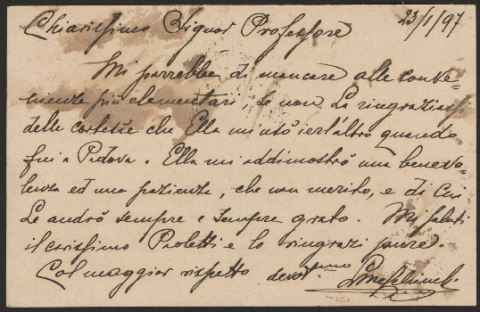 Chiarissimo Signor Professore 23/1/97
Mi parrebbe di mancare alle conve-
nienze più elementari, se non La ringraziassi
delle cortesie che Ella mi usò ierl'altro quando
fui a Padova. Ella mi addimostrò una benevo-
lenza ed una pazienza, che non merito, e di cui
Le andrò sempre e sempre grato. Mi saluti
il carissimo Paoletti e lo ringrazi pure.
Col maggior rispetto devot.mo